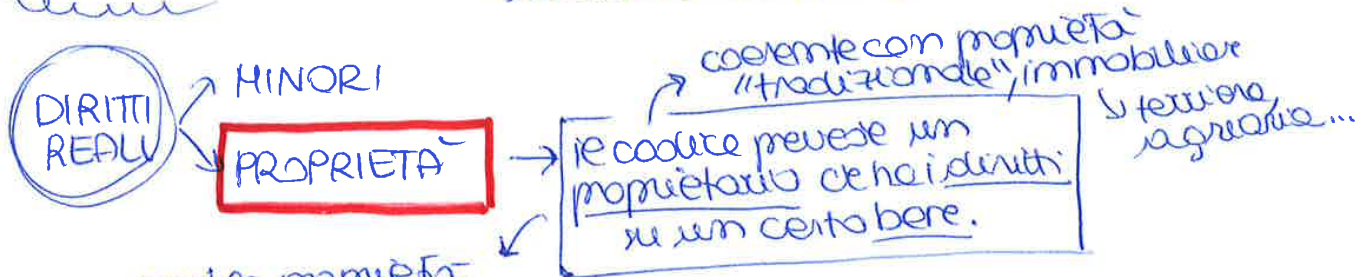 DIRITTI
REALI
MINORI
PROPRIETÀ
coerente con proprietà
"tradizionale", immobiliare
terriera,
agraria...
il codice prevede un
proprietario che ha i diritti
su un certo bene.
proprietà